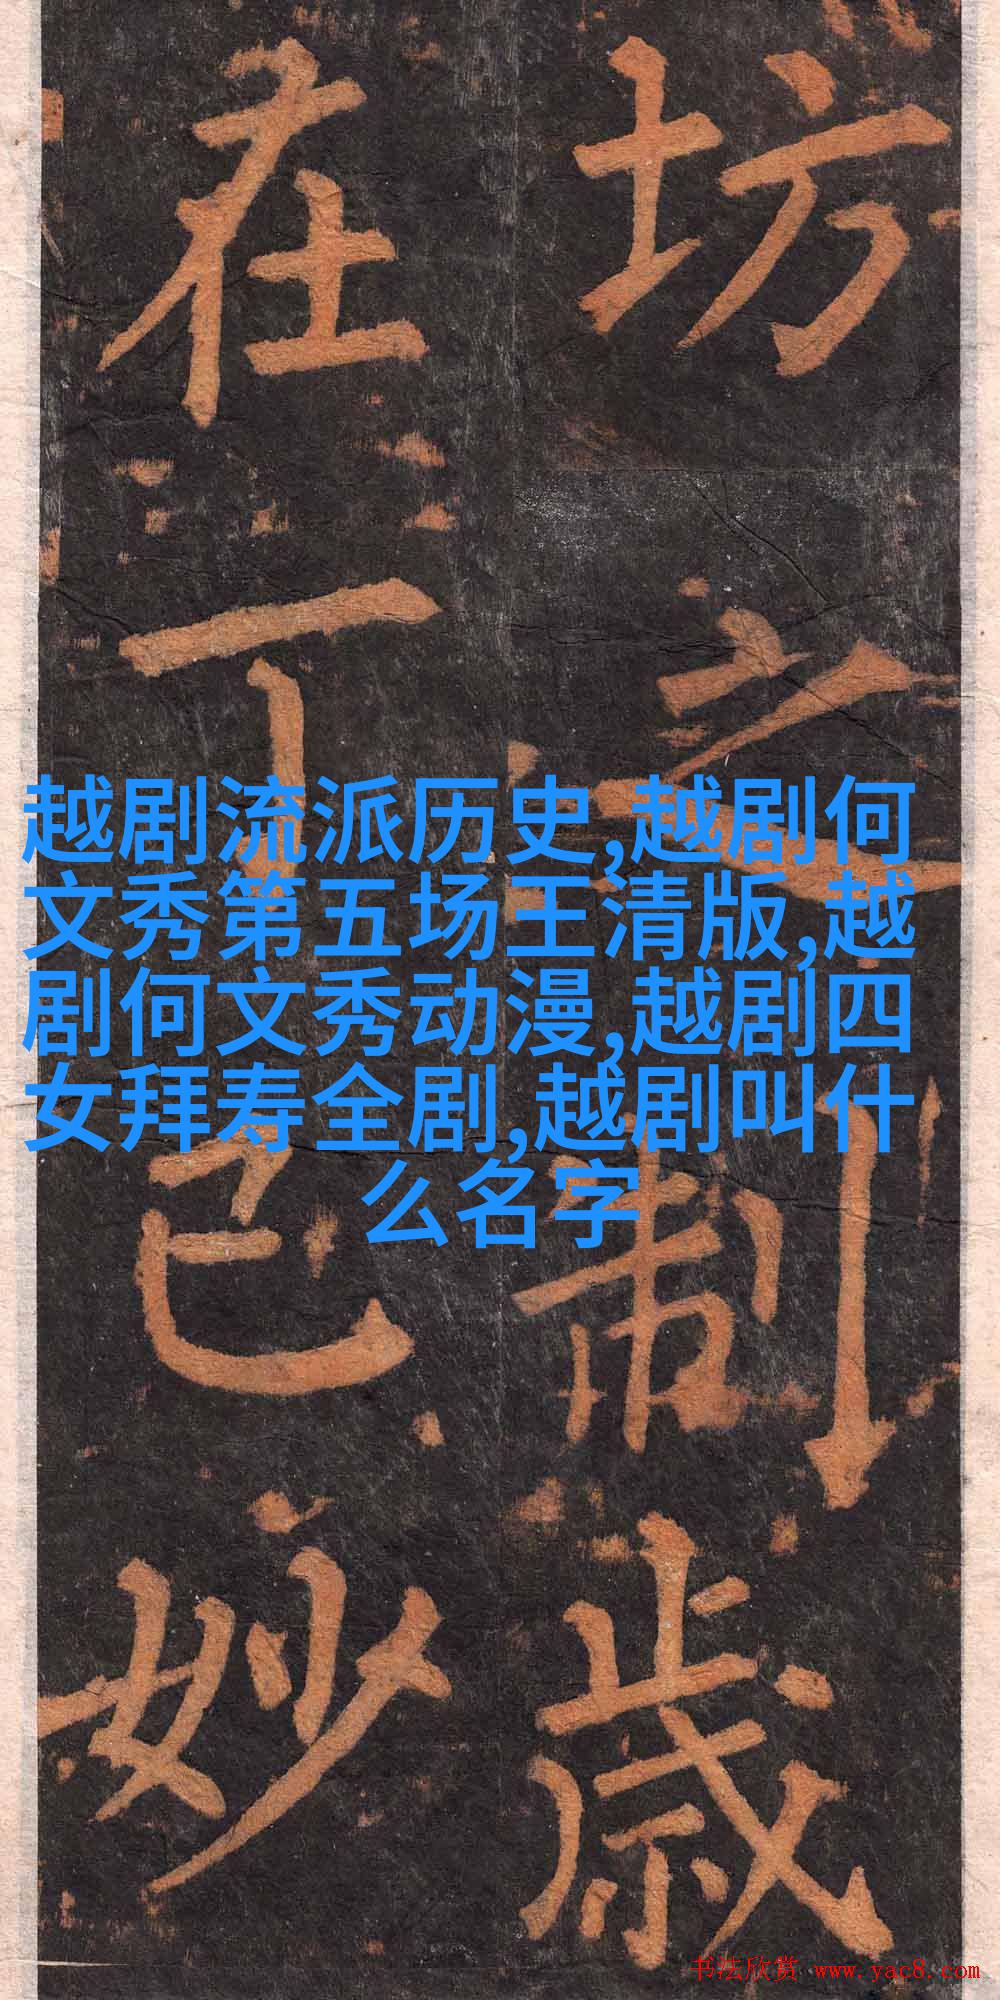 坊之制歲
在丁巳妙
越剧流派历史,越剧何
文秀第五场王清版,越
剧何文秀动漫,越剧四
女拜寿全剧,越剧叫什
么名字
书法欣赏 www.yac8.com